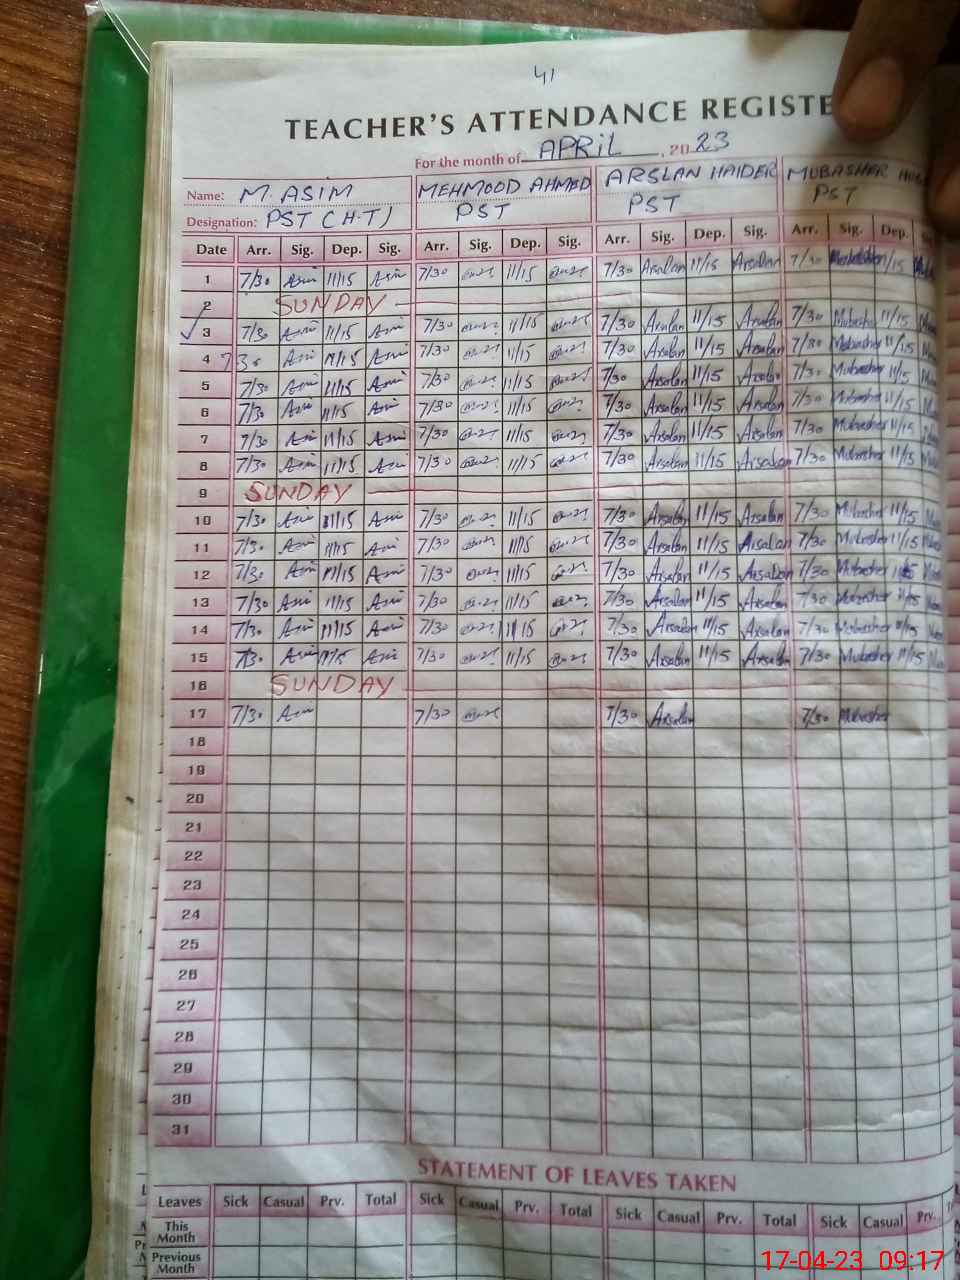 41
TEACHER'S ATTENDANCE REGISTE
For the month of APRIL, 2023
Name: M. ASIM MEHMOOD AHMED ARSLAN HAIDER MUBASHER
Designation: PST (H-T) PST PST PST
Date Arr. Sig. Dep. Sig. Arr. Sig. Dep. Sig. Arr. Sig. Dep. Sig. Arr. Sig. Dep.
1 7/30 Asim 11/15 Asim 7/30 11/15 7/30 Arsalan 11/15 Arsalan 7/30 11/15
2 SUNDAY
3 7/30 Asim 11/15 Asim 7/30 11/15 7/30 Arsalan 11/15 Arsalan 7/30 Mubasher 11/15
4 730 Asim 11/15 Asim 7/30 11/15 7/30 Arsalan 11/15 Arsalan 7/30 Mubasher 11/15
5 7/30 Asim 11/15 Asim 7/30 11/15 7/30 Arsalan 11/15 Arsalan 7/30 Mubasher 11/15
6 7/30 Asim 11/15 Asim 7/30 11/15 7/30 Arsalan 11/15 Arsalan 7/30 Mubasher 11/15
7 7/30 Asim 11/15 Asim 7/30 11/15 7/30 Arsalan 11/15 Arsalan 7/30 Mubasher 11/15
8 7/30 Asim 11/15 Asim 7/30 11/15 7/30 Arsalan 11/15 Arsalan 7/30 Mubasher 11/15
9 SUNDAY
10 7/30 Asim 11/15 Asim 7/30 11/15 7/30 Arsalan 11/15 Arsalan 7/30 Mubasher 11/15
11 7/30 Asim 11/15 Asim 7/30 11/15 7/30 Arsalan 11/15 Arsalan 7/30 Mubasher 11/15
12 7/30 Asim 11/15 Asim 7/30 11/15 7/30 Arsalan 11/15 Arsalan 7/30 Mubasher 11/15
13 7/30 Asim 11/15 Asim 7/30 11/15 7/30 Arsalan 11/15 Arsalan 7/30 Mubasher 11/15
14 7/30 Asim 11/15 Asim 7/30 11/15 7/30 Arsalan 11/15 Arsalan 7/30 Mubasher 11/15
15 7/30 Asim 11/15 Asim 7/30 11/15 7/30 Arsalan 11/15 Arsalan 7/30 Mubasher 11/15
16 SUNDAY
17 7/30 Asim 7/30 7/30 Arsalan 7/30 Mubasher
18
19
20
21
22
23
24
25
26
27
28
29
30
31
STATEMENT OF LEAVES TAKEN
Leaves Sick Casual Prv. Total Sick Casual Prv. Total Sick Casual Prv. Total Sick Casual Prv.
This Month
Previous Month
17-04-23 09:17